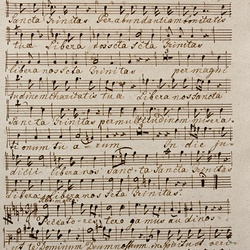 Sancta Trinitas Per abundantiam bonitatis
tuae Libera nos Scta Scta Trinitas
libera nos scta Trinitas per magni
tudinem charitatis tuae Libera nos Sancta
Sancta Trinitas per multitudinem misera
tionum tu a rum In die ju
dicii libera nos Sancta Sancta Trinitas
libera nos Scta Trinitas.
Peccatores te ro ga mus au di nos
ut Dominum Deum nostrum in Spiritu